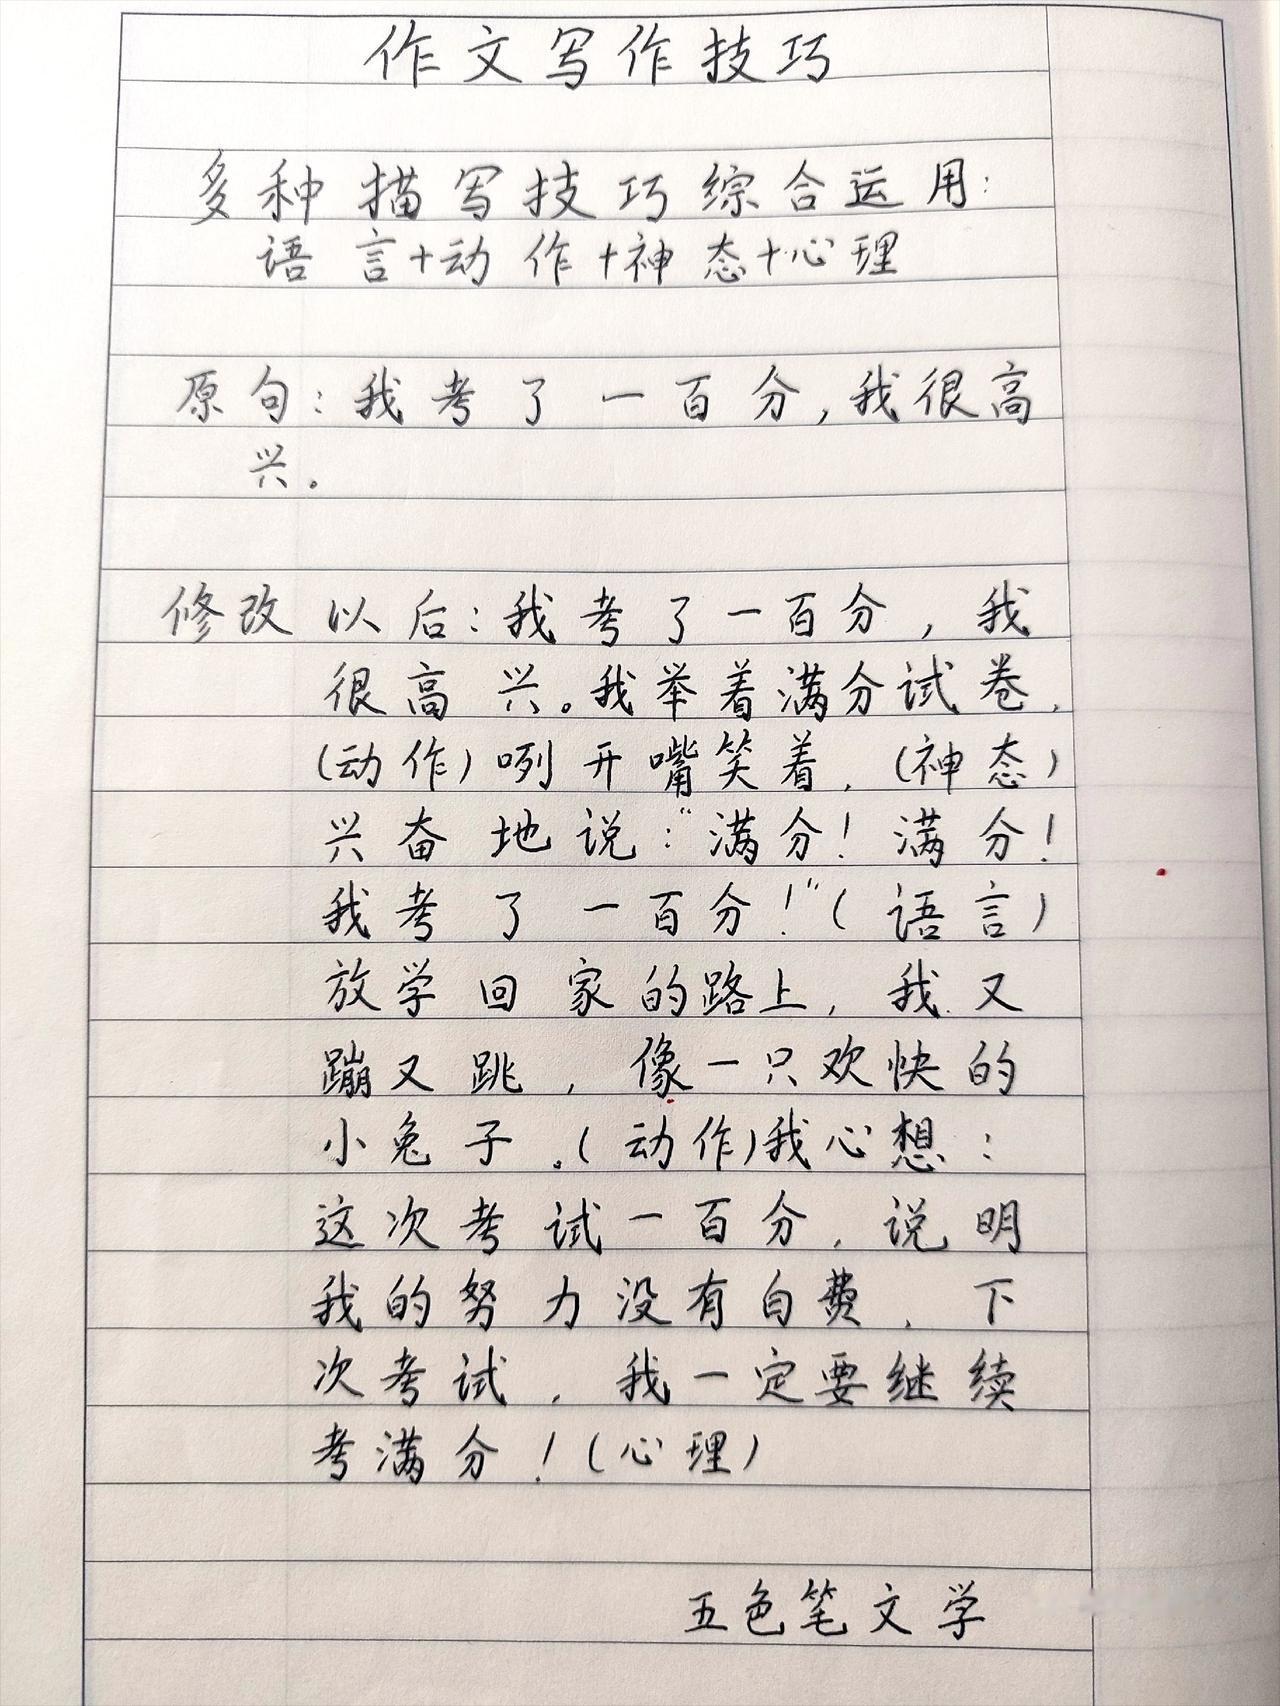 作文写作技巧
多种描写技巧综合运用:
语言+动作+神态+心理
原句:我考了一百分,我很高
兴。
修改以后:我考了一百分,我
很高兴。我举着满分试卷,
(动作)咧开嘴笑着,(神态)
兴奋地说:“满分!满分!
我考了一百分!”(语言)
放学回家的路上,我又
蹦又跳,像一只欢快的
小兔子。(动作)我心想:
这次考试一百分,说明
我的努力没有白费,下
次考试,我一定要继续
考满分!(心理)
五色笔文学